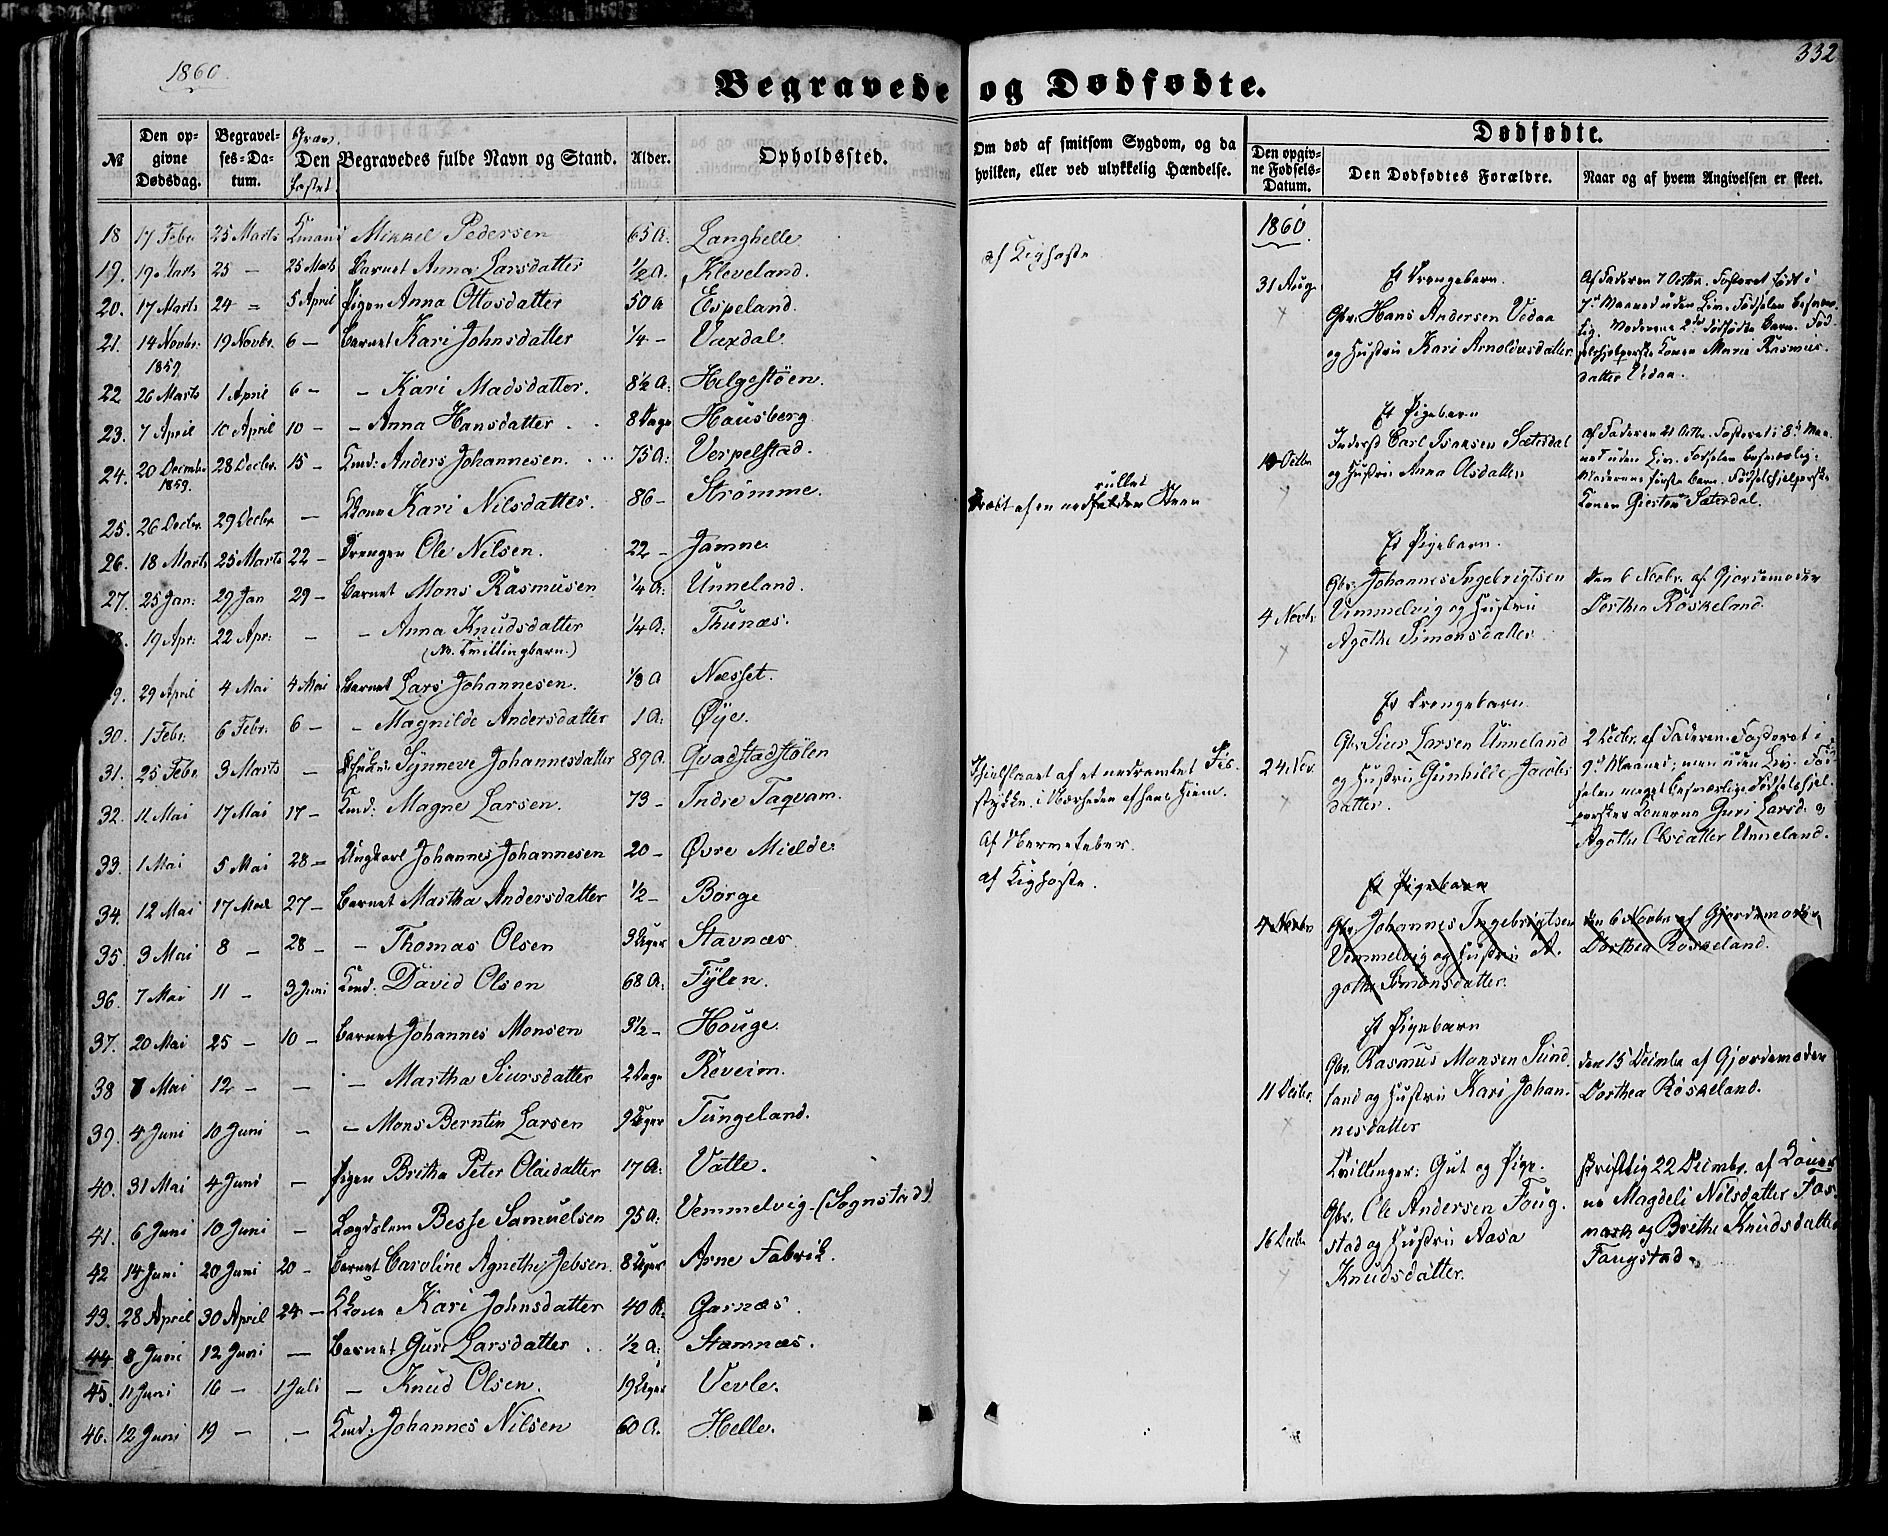 1860.
332
Begravede og Dødfødte.
№
Den opgivne Dødsdag.
Begravelses-Datum.
Den Begravedes fulde Navn og Stand.
Alder.
Opholdssted.
Om død af smitsom Sygdom, og da hvilken, eller ved ulykkelig Hændelse.
Dødfødte.
Den opgivne Fødsels-Datum.
Den Dødfødtes Forældre.
Naar og af hvem Angivelsen er skeet.
18 17 Febr. 25 Marts Mikkel Pedersen 65 A. Langhelle
19. 19 Marts 25 — 25 Marts Barnet Anna Larsdatter ½ A. Kleveland. af Kighoste
20. 17 Marts 24 — 5 April Pigen Anna Ottosdatter 50 A Espeland.
21. 14 Novbr. 1859. 19 Novbr. 6 — Barnet Kari Johnsdatter ¼ — Vaxdal.
22. 26 Marts 1 April 6 — — Kari Madsdatter. 8½ A. Helgestøen.
23. 7 April 10 April 10 — — Anna Hansdatter 8 Dage Hausberg.
24. 20 Decembr 1859. 28 Decbr. 15 — Kmd: Anders Johannesen. 75 A. Verpelstad.
25. 26 Decbr. 29 Decbr. — Kone Kari Nilsdatter. 86 — Strømme.
26. 18 Marts 25 Marts 22 — Drengen Ole Nilsen. 22 — Jamne dræbt af en nedrullet Steen
27. 25 Jan: 29 Jan 29 — Barnet Mons Rasmusen ¼ A. Unneland.
19 Apr: 22 Apr: — — Anna Knudsdatter ¼ A. Thunæs.
(N. Tvillingbarn.)
29 April 4 Mai 4 Mai Barnet Lars Johannesen. ⅓ A Næsset.
30. 1 Febr. 6 Febr: 6 — — Magnilde Andersdatter 1 A. Øye.
31. 25 Febr 3 Marts — Synneve Johannesdatter 89 A. Qvadstadstølen
32. 11 Mai 17 Mai 17 — Kmd: Magne Larsen. 73 — Indre Taqvam.
Ihjelslaaet af et nedramlet
stykke i Nærheden af hans Hjem.
33. 1 Mai 5 Mai 28 — Ungkarl Johannes Johannesen 20 — Øvre Mielde. Af Nervefeber.
34. 12 Mai 17 Mai 27 — Barnet Martha Andersdatter ½ — Borge af Kighoste.
35. 3 Mai 8 — 28 — — Thomas Olsen 3 Uger Stavnæs.
36. 7 Mai 11 — 3 Juni Kmd: David Olsen 68 A. Fylen.
37. 20 Mai 25 — 10 — Barnet Johannes Monsen 3½ — Houge.
38 7 Mai 12 — — — Martha Siursdatter 2 Dage Røveim.
39. 4 Juni 10 Juni — — Mons Berntin Larsen 9 Uger Tungeland.
40. 31 Mai 4 Juni — Pigen Britha Peter Olaidatter 17 A. Vatle.
41. 6 Juni 10 Juni — Lægdslem Besse Samuelsen 75 A. Vemmelvig. (Sognstad)
42 14 Juni 20 Juni 20 — Barnet Caroline Agnethe Jebsen. 8 Uger Arne Fabrik.
43. 28 April 30 April 24 — Kone Kari Johnsdatter 40 A. Garnæs.
44. 8 Juni 12 Juni — Barnet Guri Larsdatter ½ A. Stamnæs.
45. 11 Juni 16 — 1 Juli — Knud Olsen. 19 Uger Vevle.
46. 12 Juni 19 — — Kmd: Johannes Nilsen 60 A. Helle.
1860.
31 Aug.
Et Drengebarn.
Gbr. Hans Andersen Vedaa
og Hustru Kari Arnoldusdatter
Af Faderen 7 Octbr. Fosteret født i
7de Maaned uden Liv. Fødselen besværlig.
Moderens 2det dødfødte Barn. Fødselshjelperske
Konen Marie Rasmusdatter Vedaa.
Et Pigebarn
10 Octbr
Inderst Carl Isaksen Sætrdal
og Hustru Anna Olsdatter
af Faderen 21 Octbr. Fosteret i 8de Maaned
uden Liv. Fødselen besværlig.
Moderens første Barn. Fødselshjelperske
Konen Giertru Sæterdal.
Et Pigebarn.
4 Novbr
Gbr. Johannes Ingebrigtsen
Vemmelvig og Hustru
Agathe Simonsdatter
Den 6 Novbr. af Gjordemoder
Dorthea Røskeland.
Et Drengebarn.
24 Nov.
Gbr. Siur Larsen Unneland
og Hustru Gunhilde Jacobsdatter.
2 Decbr. af Faderen. Fosteret i
9de Maaned; men uden Liv. Fødselen
meget besværlig. Fødselshjelpersker
Konerne Guri Larsd. og
Agathe Olsdatter Unneland.
Et Pigebarn
4 Novbr
Gbr. Johannes Ingebrigtsen
Vemmelvig og Hustru Agathe
Simonsdatter.
den 6 Novbr af Gjordemoder
Dorthea Røskeland.
Et Pigebarn
11 Decbr.
Gbr. Rasmus Monsen Sundland
og Hustru Kari Johannesdatter
den 15 Decmbr af Gjordemoder
Dorthea Røskeland.
16 Decbr
Tvillinger: Gut og Pige.
Gbr. Ole Andersen Fougstad
og Hustru Aasa
Knudsdatter.
Skriftlig 22 Decmbr. af Konerne
Magdeli Nilsdatter Fosmark
og Brithe Knudsdatter
Fougstad.